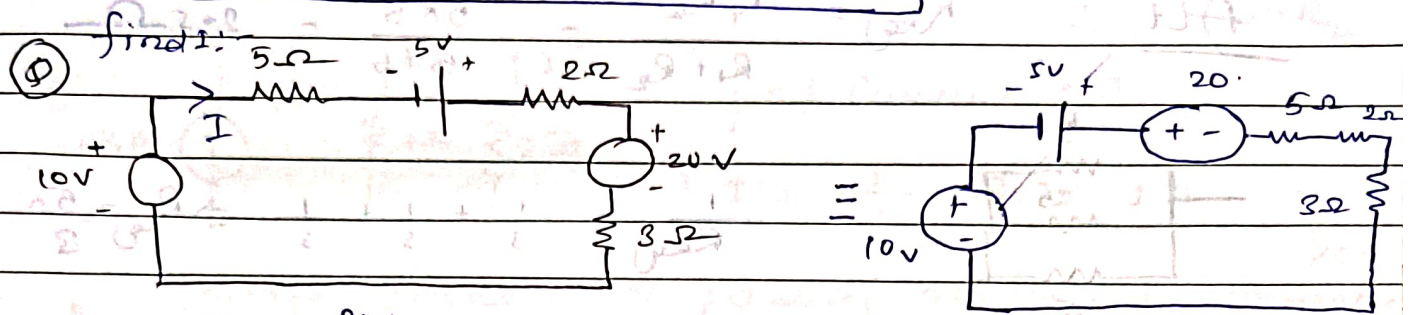 Q find I:-
5Ω - 5V + 2Ω
I
+ 10V -
+ 20V -
3Ω
≡
- 5V + 20.
+ - 5Ω 2Ω
+ - 10v
3Ω